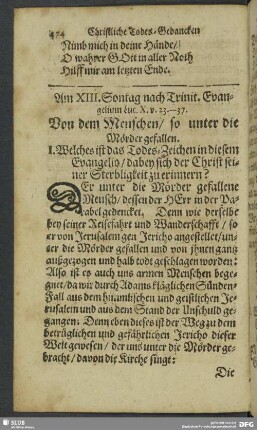 474 Christliche Todes-Gedancken
Nimb mich in deine Hände/
O wahrer GOtt in aller Noth
Hilff mir am letzten Ende.
Am XIII. Sontag nach Trinit. Evan-
gelium Luc. X. v. 23.--37.
Von dem Menschen/ so unter die
Mörder gefallen.
I. Welches ist das Todes-Zeichen in diesem
Evangelio/ dabey sich der Christ sei-
ner Sterbligkeit zu erinnern?
DEr unter die Mörder gefallene
Mensch/ dessen der HErr in der Pa-
rabel gedencket. Denn wie derselbe
bey seiner Reisefahrt und Wanderschafft/ so
er von Jerusalem gen Jericho angestellet/ un-
ter die Mörder gefallen und von ihnen gantz
außgezogen und halb todt geschlagen worden:
Also ist es auch uns armen Menschen bege-
gnet/ da wir durch Adams kläglichen Sünden-
Fall aus dem himmlischen und geistlichen Je-
rusalem und aus dem Stand der Unschuld ge-
gangen. Denn eben dieses ist der Weg zu dem
betrüglichen und gefährlichen Jericho dieser
Welt gewesen/ der uns unter die Mörder ge-
bracht/ davon die Kirche singt:
Die
SLUB